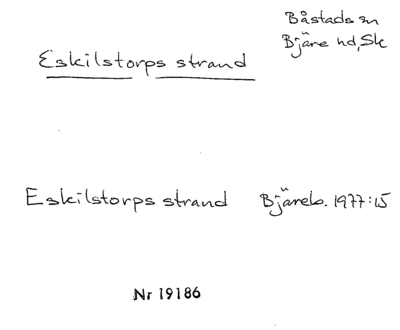 Båstads sn
Bjäre hd, Sk
Eskilstorps strand
Eskilstorps strand Bjäreb. 1977:15
Nr 19186